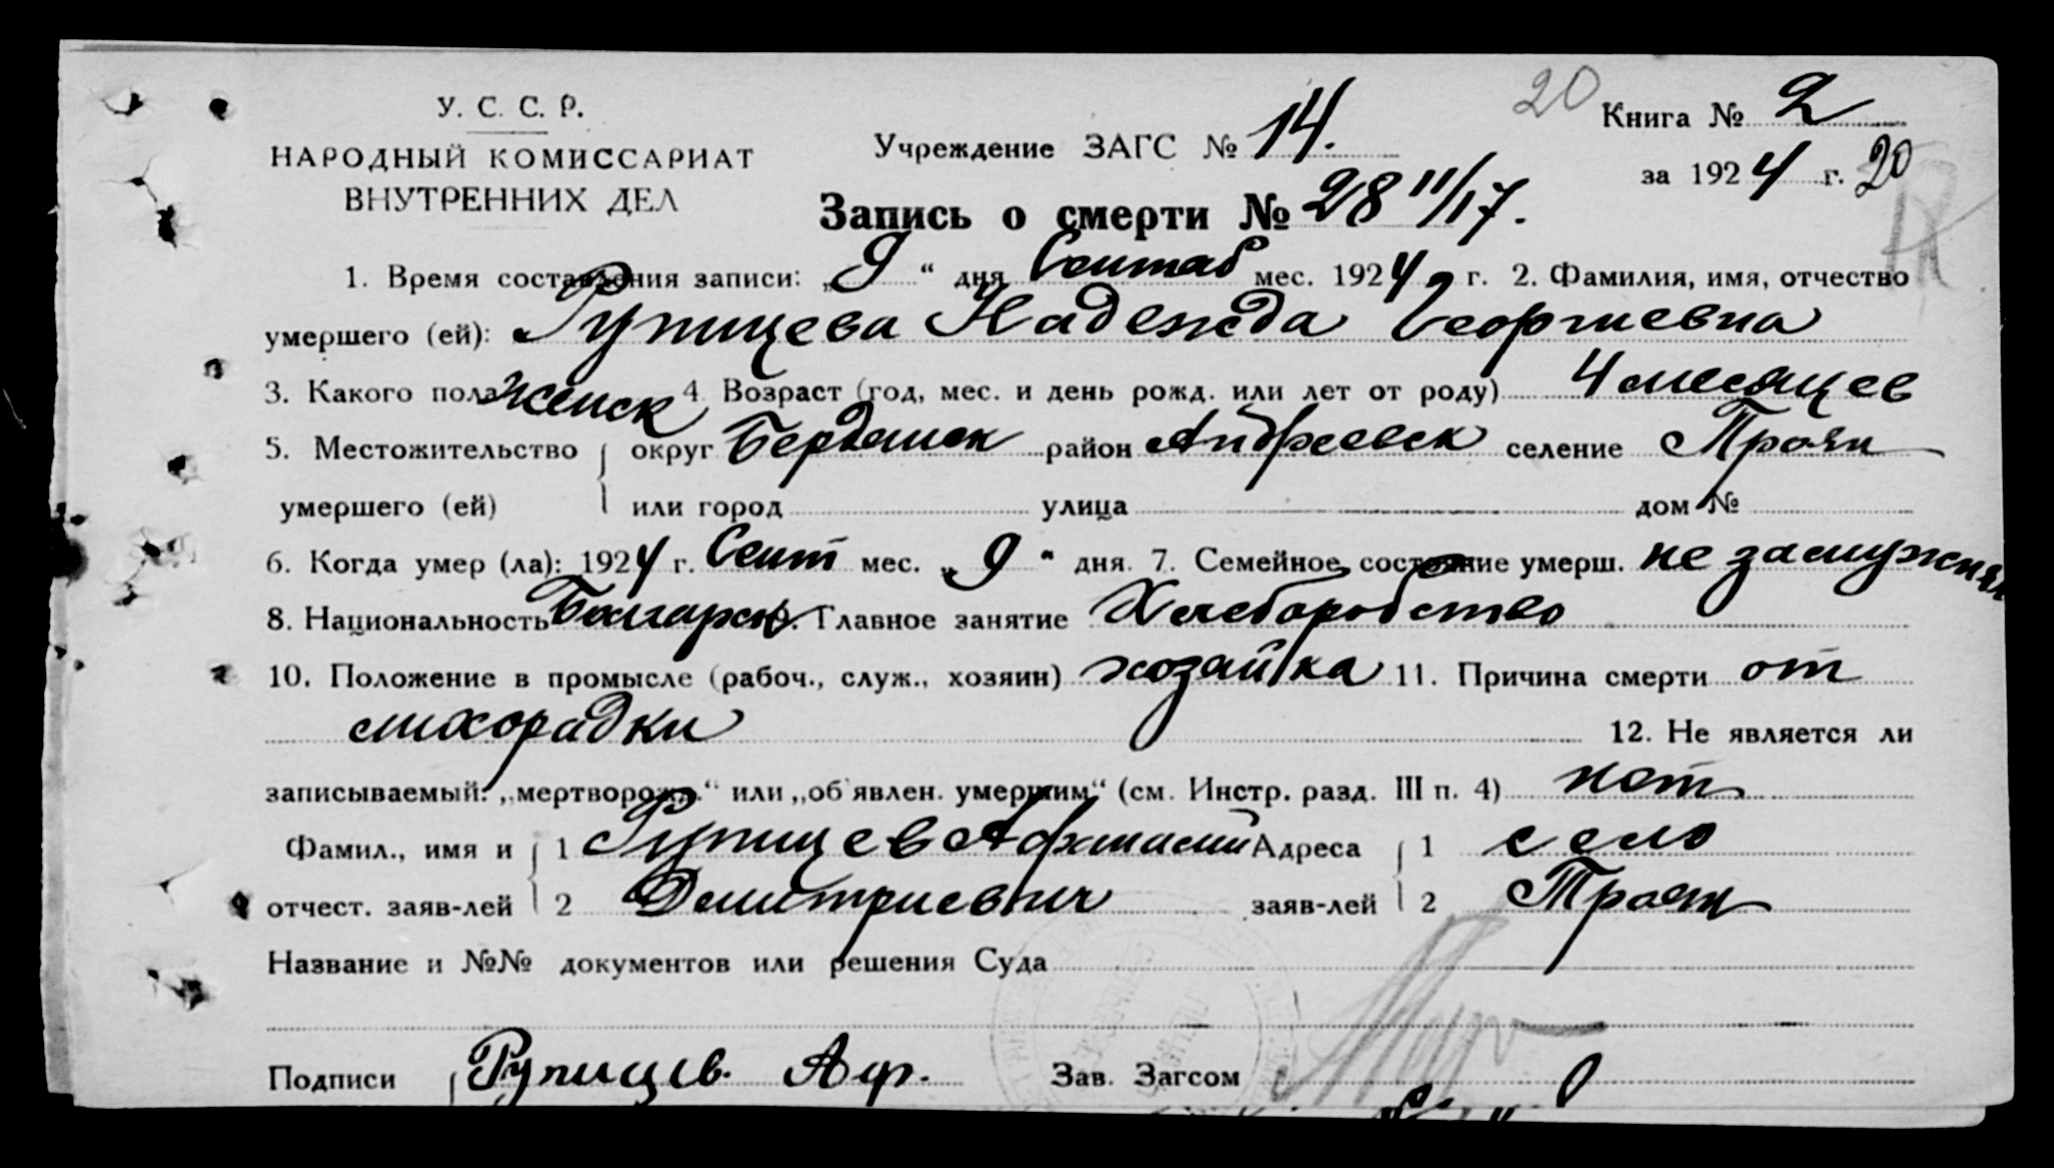 У. С. С. Р.
НАРОДНЫЙ КОМИССАРИАТ
ВНУТРЕННИХ ДЕЛ
Учреждение ЗАГС № 14.
20 Книга № 2
за 1924 г. 20
Запись о смерти № 28 11/17.
1. Время составления записи: „9“ дня Сентяб мес. 1924 г. 2. Фамилия, имя, отчество
умершего (ей): Рупицева Надежда Георгиевна
3. Какого пола женск 4 Возраст (год, мес. и день рожд. или лет от роду) 4 месяцев
5. Местожительство округ Бердянск район Андреевск селение Троян
умершего (ей) или город улица дом №
6. Когда умер (ла): 1924 г. Сент мес. „9“ дня. 7. Семейное состояние умерш. не замужняя
8. Национальность Болгарск. Главное занятие Хлеборобство
10. Положение в промысле (рабоч., служ., хозяин) хозайка 11. Причина смерти от
лихорадки 12. Не является ли
записываемый: „мертворожд.“ или „об'явлен. умершим“ (см. Инстр. разд. III п. 4) нет
Фамил., имя и 1 Рупицев Афанасий Адреса 1 село
отчест. заяв-лей 2 Димитриевич заяв-лей 2 Троян
Название и №№ документов или решения Суда
Подписи Рупицев. Аф. Зав. Загсом